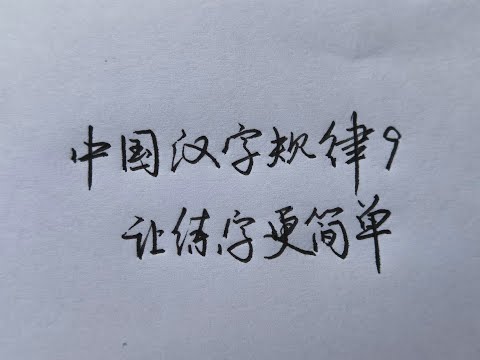 中国汉字规律9
让练字更简单